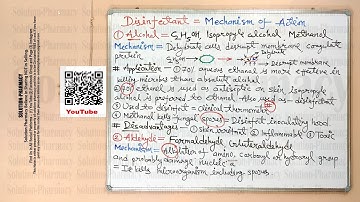 SOLUTION-PHARMACY
YouTube
Disinfectant = Mechanism of Action
① Alcohol = C₂H₅OH, Isopropyle alcohol Methanol
Mechanism = Dehydrate cells disrupt membrane coagulate
protein.
→ Disrupt membrane
# Application = ① 70% aqueous ethanol is more effective in
killing microbes than absolute alcohol.
② 70% ethanol used as antiseptic on skin. Isopropyle
alcohol is preferred to ethanol. Also used as = disinfectant
③ Used to disinfect = clinical thermometer.
④ Methanol kills fungal spores = Disinfect inoculating hood.
# Disadvantages = ① Skin irritant ② Inflammable ③ Toxic
② Aldehyde = Formaldehyde, Gluteraldehyde
Mechanism = Alkylation of amino, carboxyl or hydroxyl group
and probably damage nucleic a
= It kills Microorganism including spores.